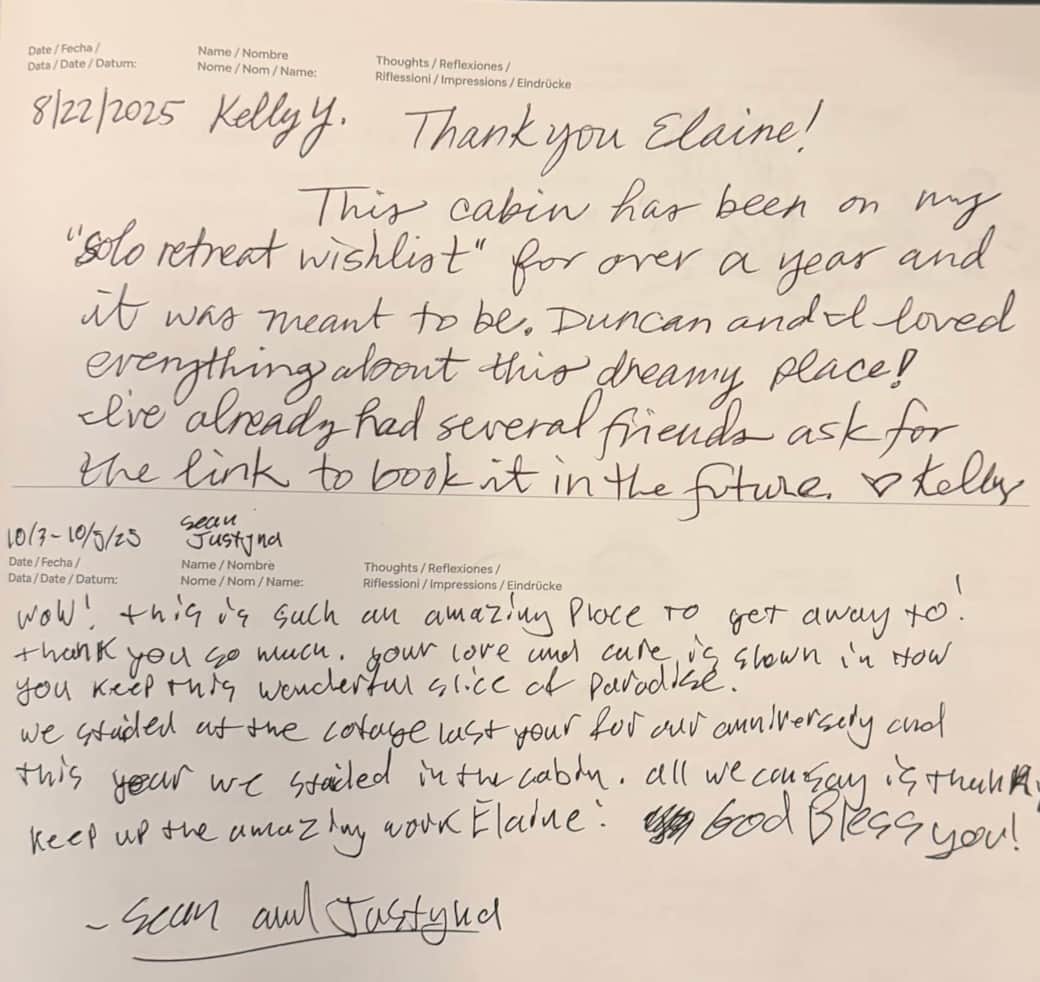 Date / Fecha /
Data / Date / Datum:
Name / Nombre
Nome / Nom / Name:
Thoughts / Reflexiones /
Riflessioni / Impressions / Eindrücke
8/22/2025 Kelly Y. Thank you Elaine!
This cabin has been on my
"solo retreat wishlist" for over a year and
it was meant to be. Duncan and I loved
everything about this dreamy place!
I've already had several friends ask for
the link to book it in the future. ♡ Kelly
10/3-10/5/25 Sean
Justyna
Date / Fecha /
Data / Date / Datum:
Name / Nombre
Nome / Nom / Name:
Thoughts / Reflexiones /
Riflessioni / Impressions / Eindrücke
WOW! this is such an amazing Place to get away to!
thank you so much. your love and care is shown in How
you keep this wonderful slice of Paradise.
we staided at the cotage last your for our anniversedy and
this year we staied in the cabin. all we can say is thank,
keep up the amazing work Elaine! God Bless you!
- Sean and Justyna